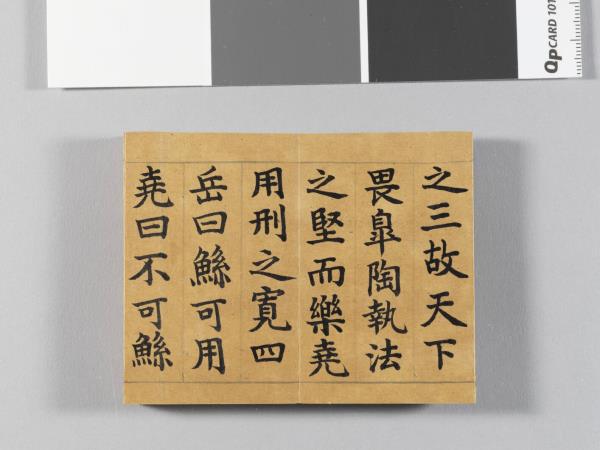 之三故天下
畏皐陶執法
之堅而樂堯
用刑之寬四
岳曰鯀可用
堯曰不可鯀
QpCARD 101